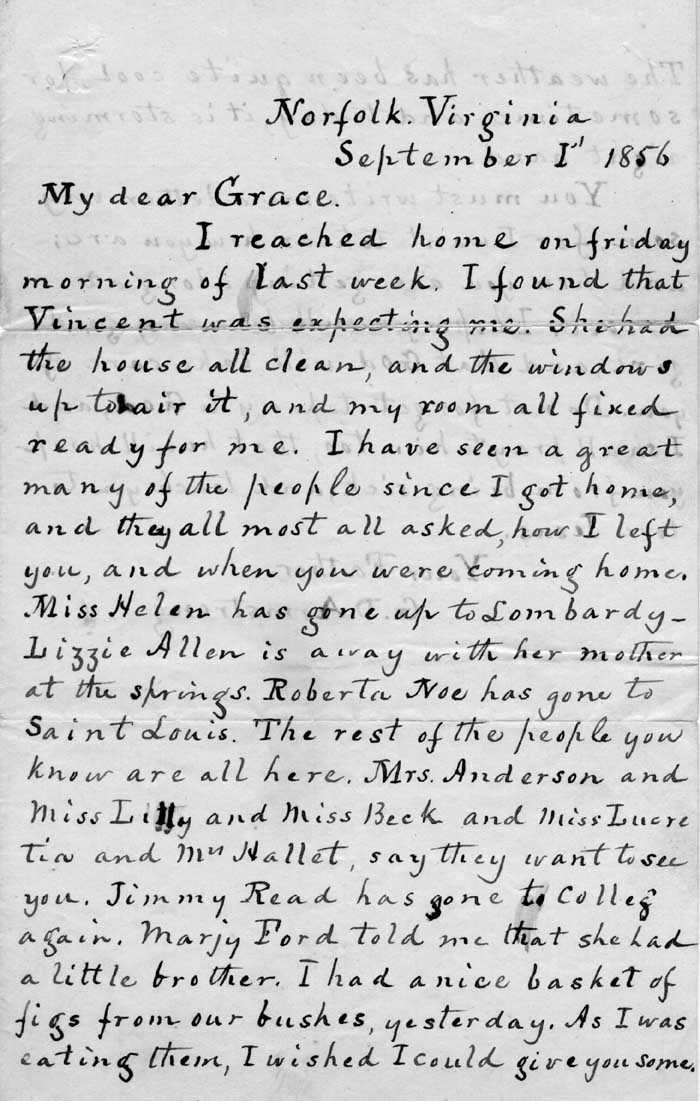 Norfolk. Virginia
September 1st 1856
My dear Grace.
I reached home on friday
morning of last week. I found that
Vincent was expecting me. She had
the house all clean, and the windows
up to air it, and my room all fixed
ready for me. I have seen a great
many of the people since I got home,
and they all most all asked, how I left
you, and when you were coming home.
Miss Helen has gone up to Lombardy-
Lizzie Allen is away with her mother
at the springs. Roberta Noe has gone to
Saint Louis. The rest of the people you
know are all here. Mrs. Anderson and
Miss Lilly and Miss Beck and Miss Lucre
tia and Mrs Hallet, say they want to see
you. Jimmy Read has gone to Colleg
again. Marjy Ford told me that she had
a little brother. I had a nice basket of
figs from our bushes, yesterday. As I was
eating them, I wished I could give you some.